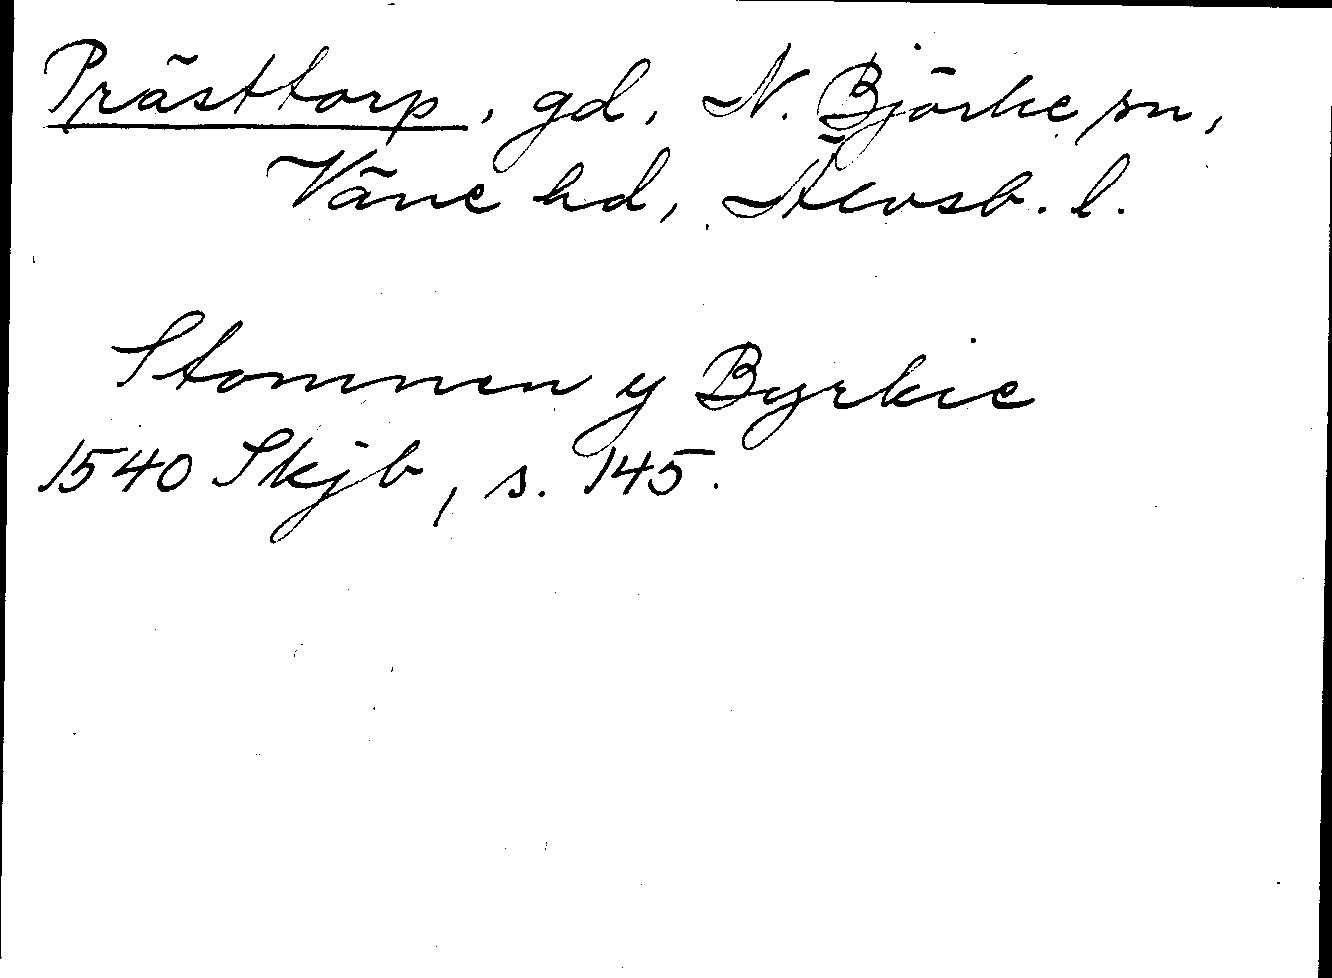 Prästtorp, gd, N. Björke sn,
Väne hd, Älvsb. l.
Stommen y Byrkie
1540 Skjb, s. 145.